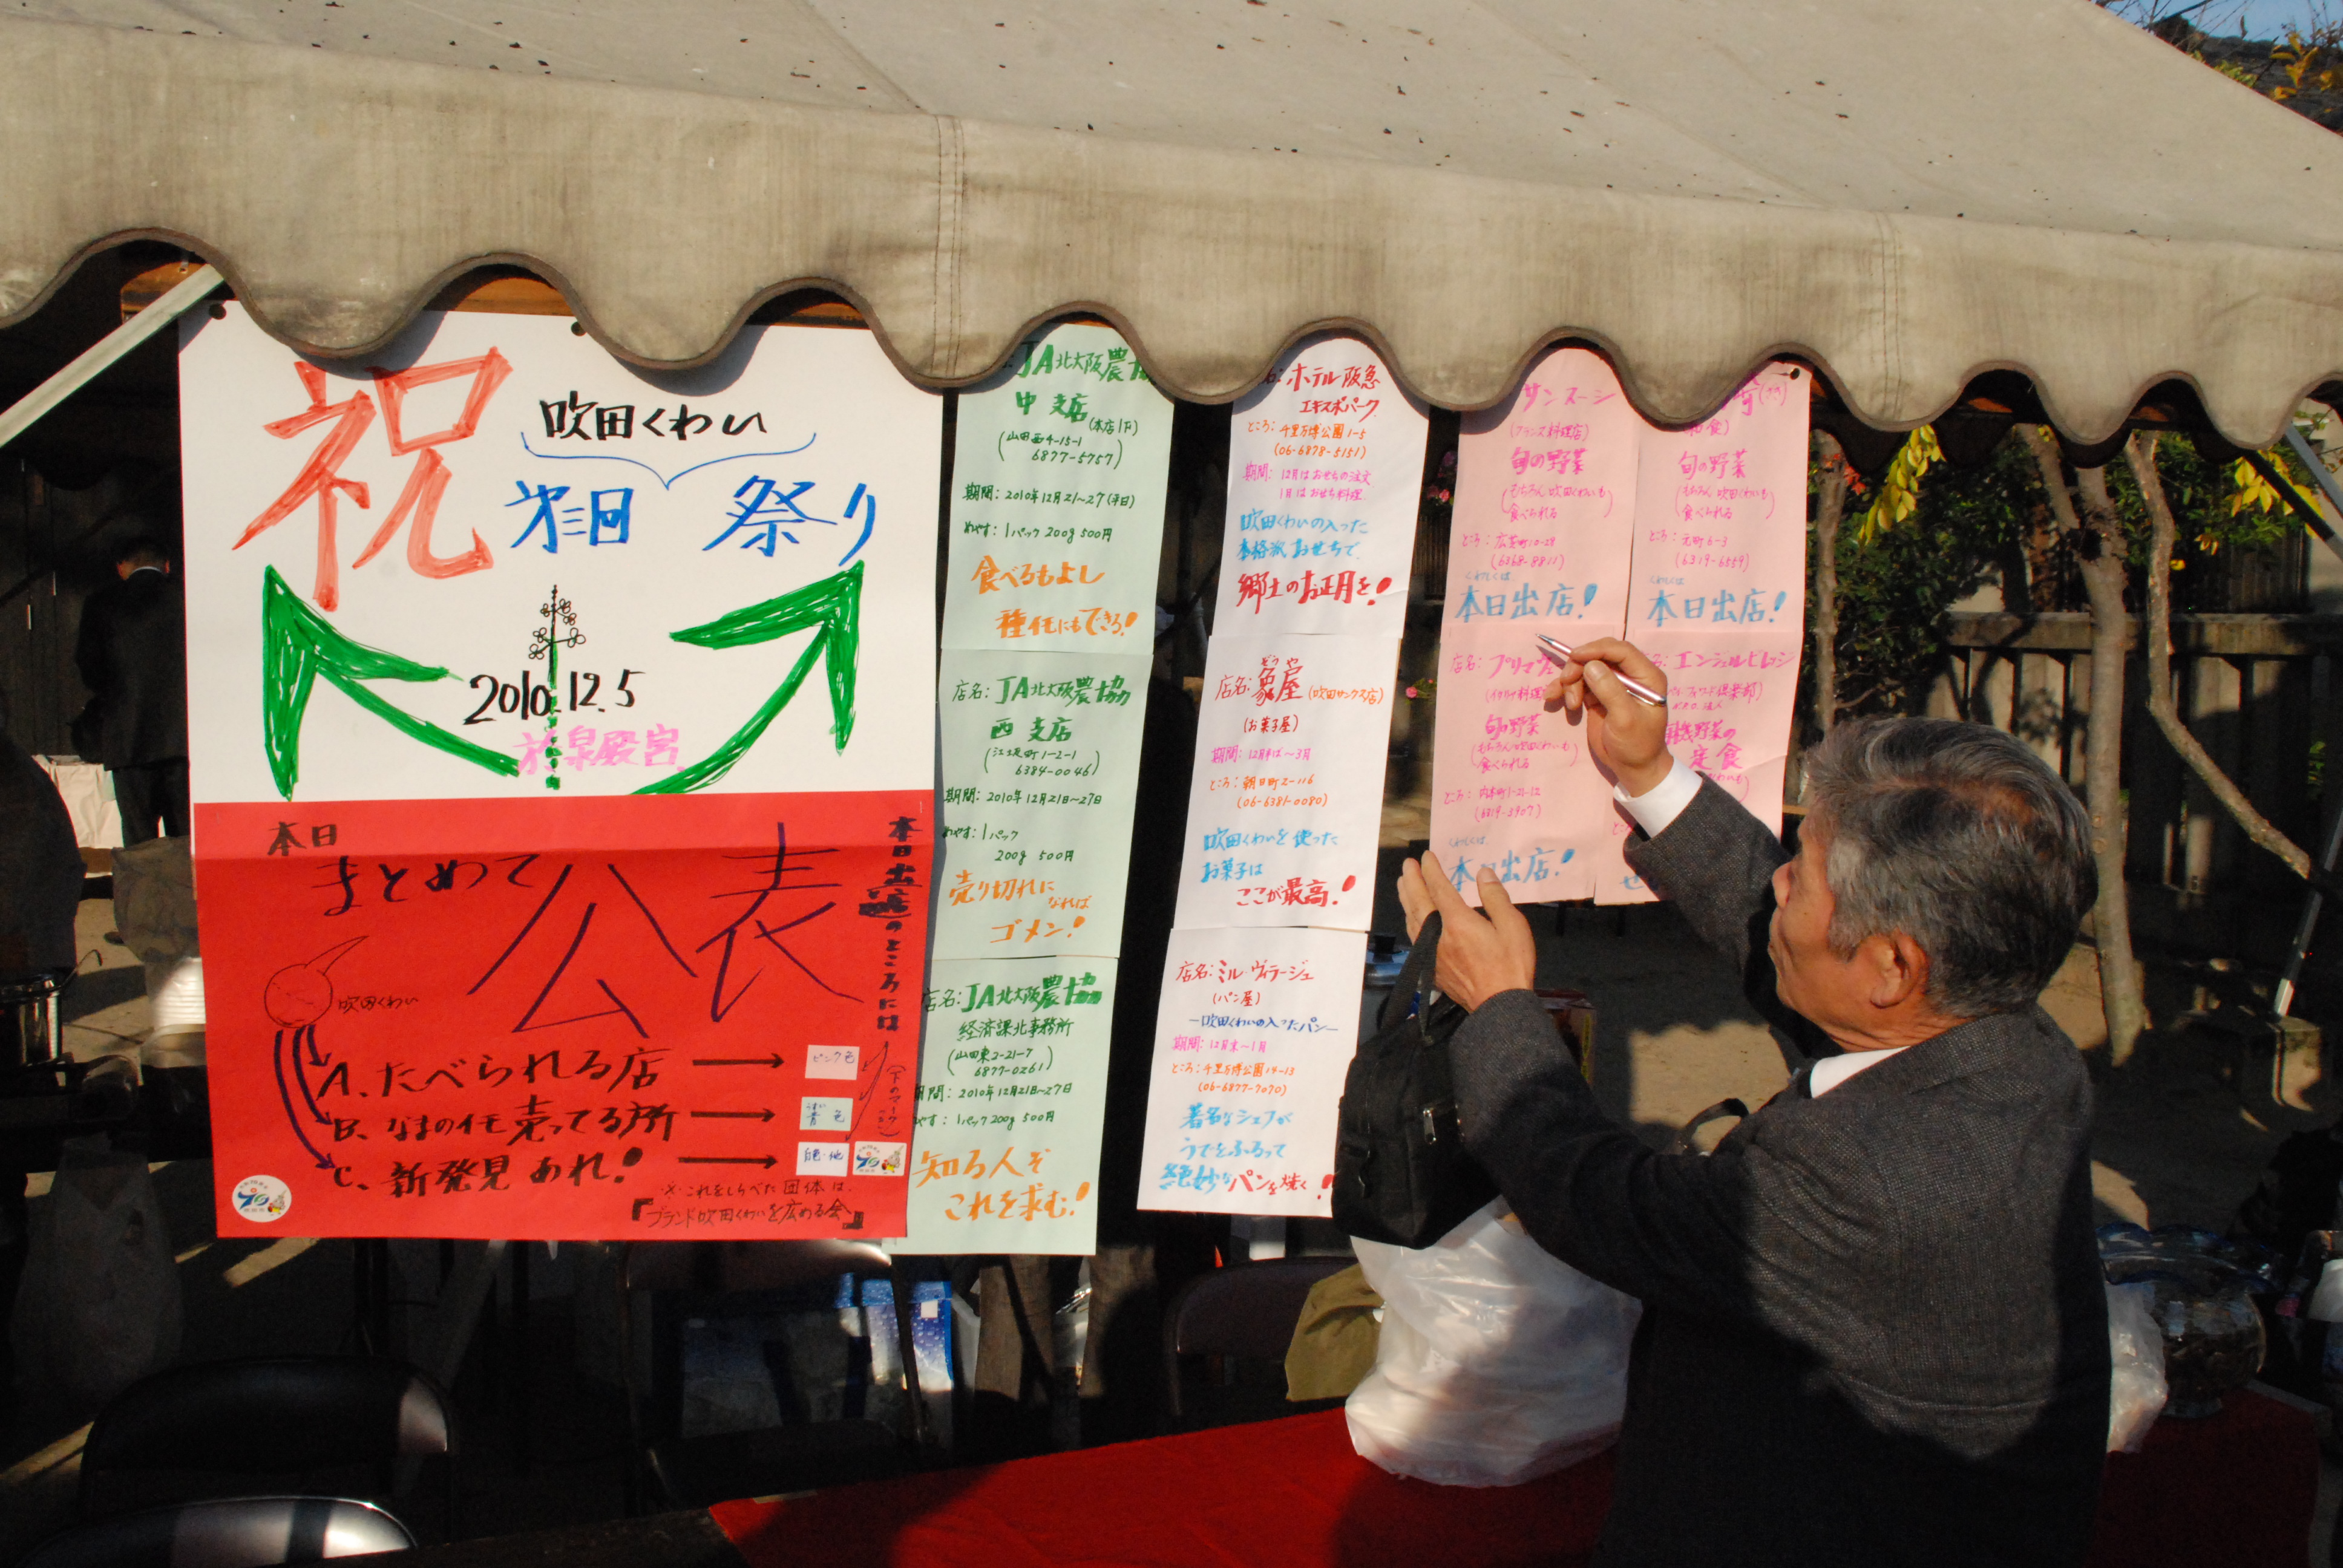 祝
吹田くわい
第三回 祭り
2010.12.5
於泉殿宮
本日
まとめて
公表
本日出店のところには
(下のマーク
吹田くわい
A、たべられる店
ピンク色
B、なまのイモ売ってる所
青色
C、新発見あれ!
白色・他
※これをしらべた団体は、
「ブランド吹田くわいを広める会」
JA北大阪農協
中支店(本店1F)
(山田西4-15-1
6877-5757)
期間:2010年12月21〜27(平日)
ねやす:1パック200g 500円
食べるもよし
種イモにもできる!
店名:JA北大阪農協
西支店
(江坂町1-2-1
6384-0046)
期間:2010年12月21日〜27日
ねやす:1パック
200g 500円
売り切れに
なれば
ゴメン!
店名:JA北大阪農協
経済課北事務所
(山田東2-21-7
6877-0261)
期間:2010年12月21日〜27日
やす:1パック200g 500円
知る人ぞ
これを求む!
名:ホテル阪急
エキスポパーク
ところ:千里万博公園1-5
(06-6878-5151)
期間:12月はおせちの注文
1月はおせち料理
吹田くわいの入った
本格派おせちで
郷土のお正月を!
ぞうや
店名:象屋(吹田サンクス店)
(お菓子屋)
期間:12月半ば〜3月
ところ:朝日町2-116
(06-6381-0080)
吹田くわいを使った
お菓子は
ここが最高!
店名:ミルヴィラージュ
(パン屋)
―吹田くわいの入ったパン―
期間:12月末〜1月
ところ:千里万博公園14-13
(06-6877-7070)
著名なシェフが
うでをふるって
絶妙なパンを焼く!
サンスーシ
(フランス料理店)
旬の野菜
(もちろん吹田くわいも
食べられる)
ところ:広芝町10-28
(6368-8811)
くわしくは
本日出店!
和食)
旬の野菜
(もちろん吹田くわいも
食べられる)
ところ:元町6-3
(6319-6559)
くわしくは
本日出店!
店名:プリマヴェ
(イタリア料理
旬の野菜
(もちろん吹田くわいも
食べられる)
ところ:内本町1-21-12
(6319-3907)
くわしくは
本日出店!
名:エンジェルビレッジ
倶楽部)
野菜の
定食